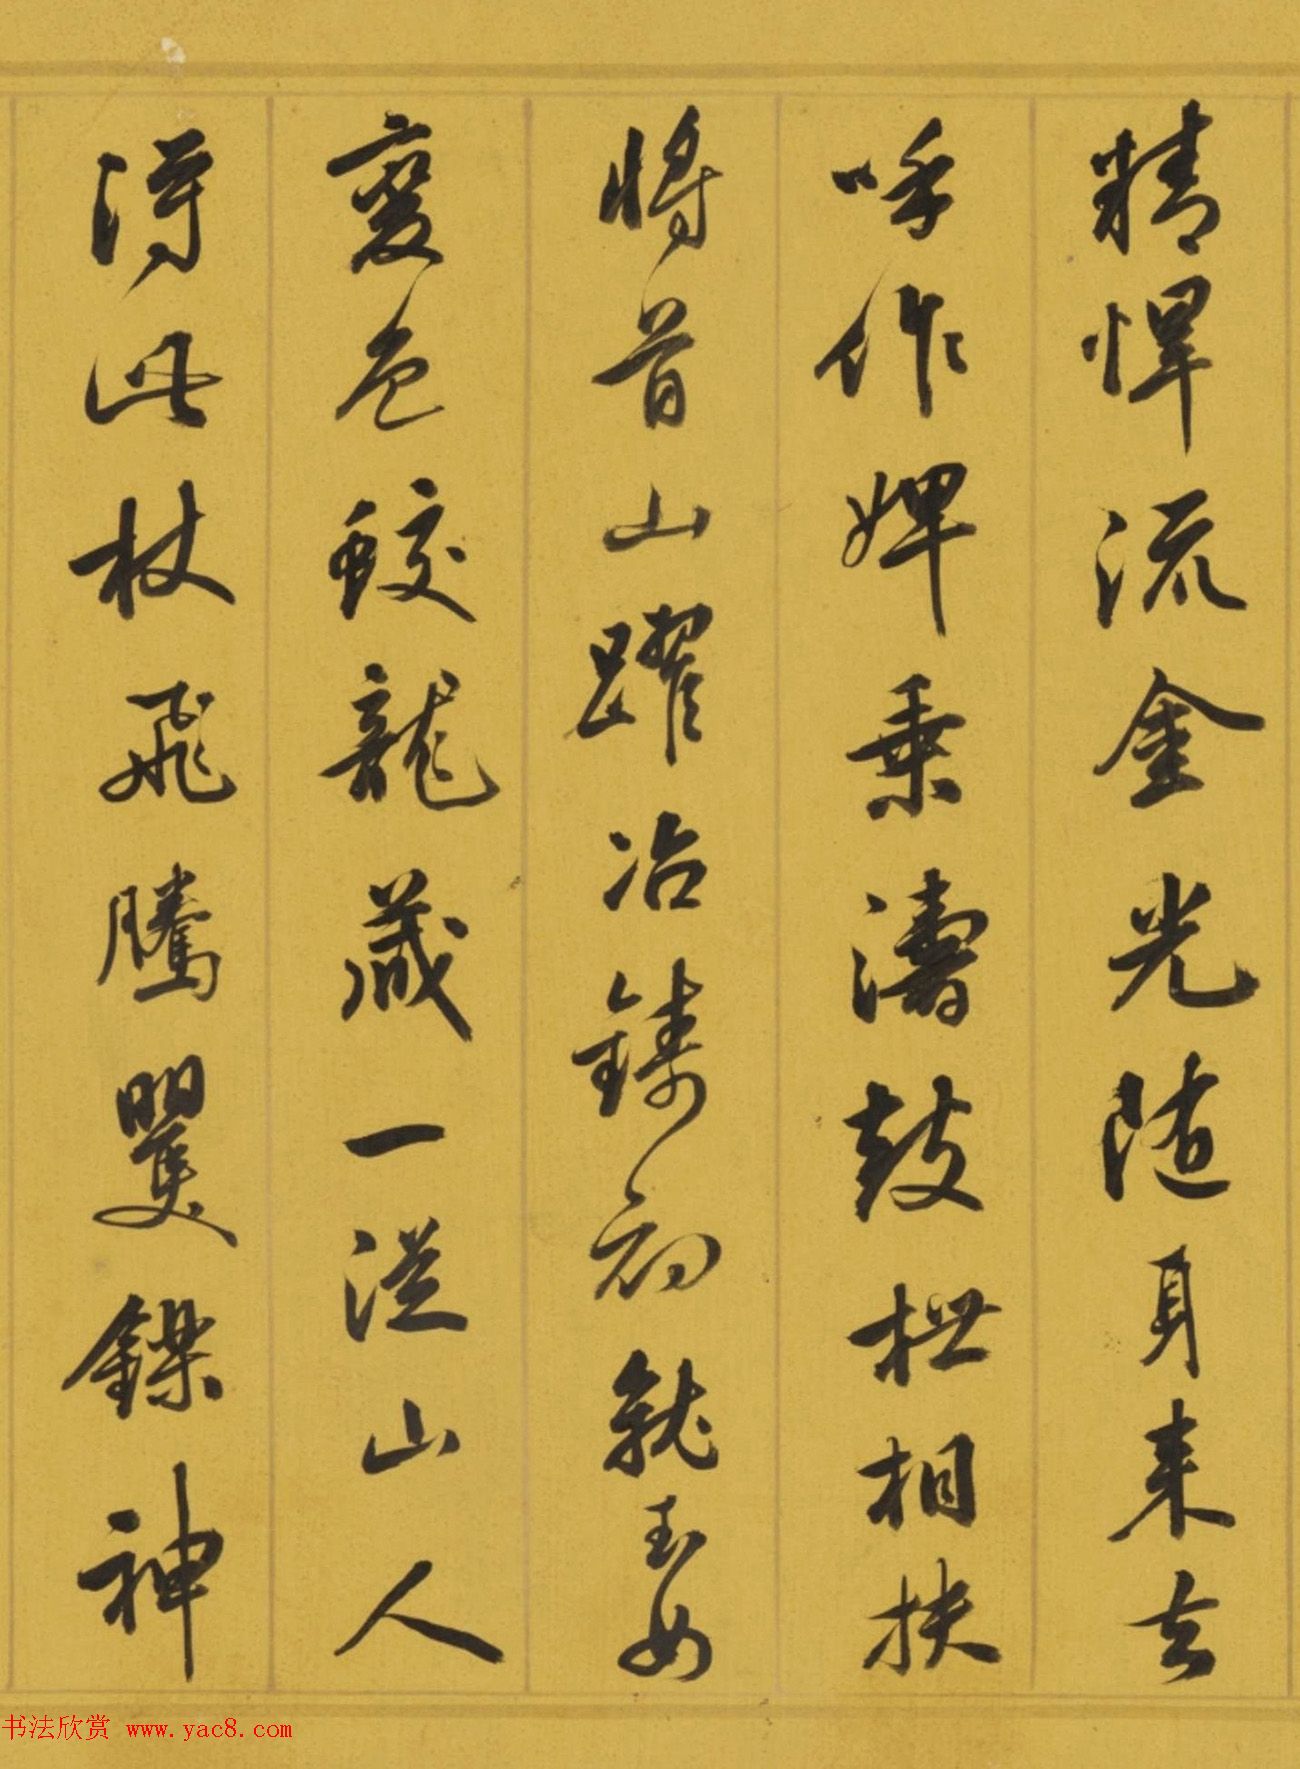 精悍流金光随身来去
呼作婢乗濤鼓枻相扶
將首山躍冶鑄初就玉女
變色蛟龍藏一從山人
得此杖飛騰矍鑠神
书法欣赏 www.yac8.com